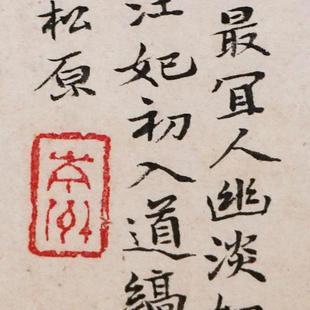 最冝人幽淡
江妃初入道縞
松原